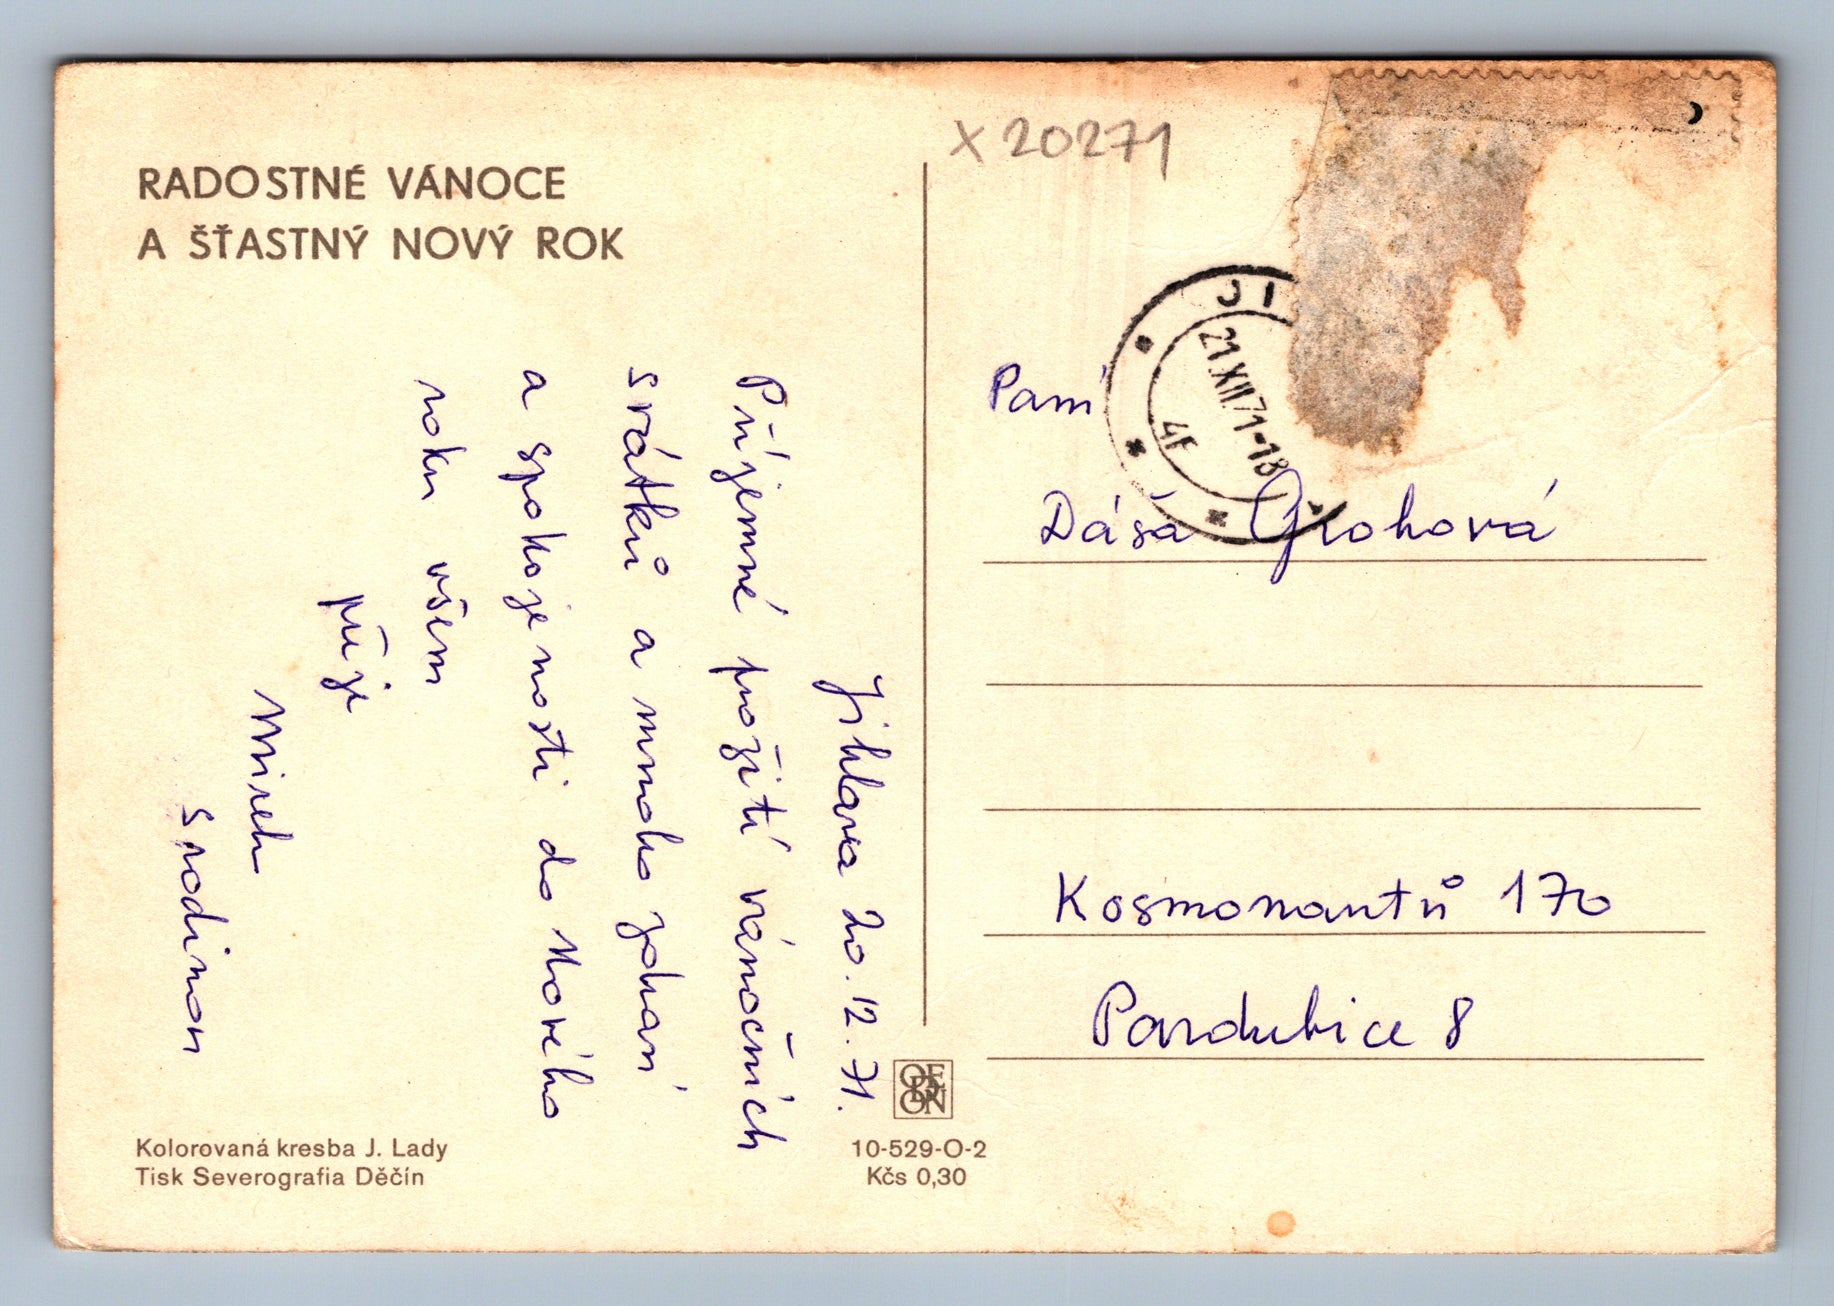 RADOSTNÉ VÁNOCE
A ŠŤASTNÝ NOVÝ ROK
Jihlava 20.12.71.
Příjemné prožití vánočních
svátků a mnoho zdraví
a spokojenosti do Nového
roku všem
přeje
Mirek
s rodinou
Kolorovaná kresba J. Lady
Tisk Severografia Děčín
ORBIS
10-529-O-2
Kčs 0,30
X 20271
JI
21.XII.71-18
4F
Paní
Dáša Grohová
Kosmonautů 170
Pardubice 8